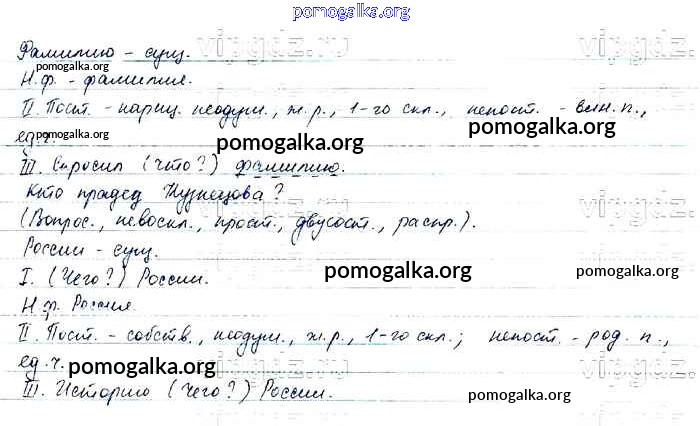 pomogalka.org
Фамилию - сущ.
Н.ф. - фамилия.
II. Пост. - нариц. неодуш., ж.р., 1-го скл., непост. - вин. п.,
ед.ч.
III. Спросил (что?) фамилию.
Кто прадед Кузнецова?
(Вопрос., невоскл., прост., двусост., распр.).
России - сущ.
I. (Чего?) России.
Н.ф. Россия.
II. Пост. - собств., неодуш., ж.р., 1-го скл.; непост. - род. п.,
ед.ч.
III. Историю (чего?) России.
pomogalka.org
pomogalka.org
pomogalka.org
pomogalka.org
pomogalka.org
pomogalka.org
pomogalka.org
pomogalka.org
pomogalka.org
vipgdz.ru